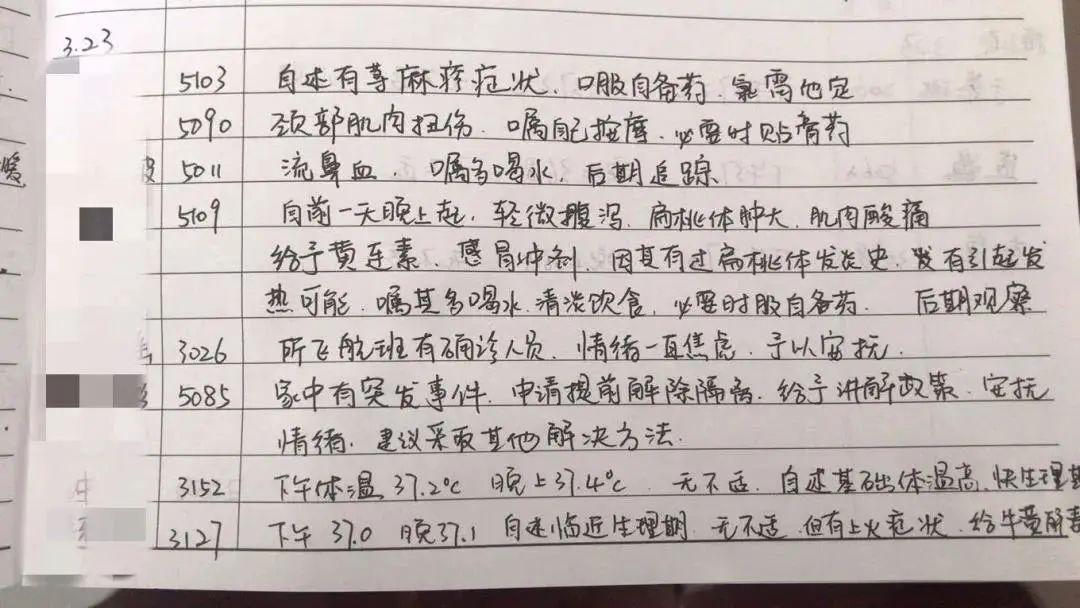 3.23
5103 自述有荨麻疹症状、口服自备药、氯雷他定
5090 颈部肌肉扭伤、嘱自己按摩、必要时贴膏药
5011 流鼻血、嘱多喝水、后期追踪
5109 自前一天晚上起、轻微腹泻、扁桃体肿大、肌肉酸痛
给予黄连素、感冒冲剂、因其有过扁桃体发炎史、发有引起发
热可能、嘱其多喝水、清淡饮食、必要时服自备药、后期观察
3026 所飞航班有确诊人员、情绪一直焦虑、予以安抚.
5085 家中有突发事件、申请提前解除隔离、给予讲解政策、安抚
情绪、建议采取其他解决方法.
3152 下午体温37.2℃ 晚上37.4℃、无不适、自述基础体温高、快生理期
3127 下午37.0 晚37.1 自述临近生理期、无不适、但有上火症状、给牛黄解毒